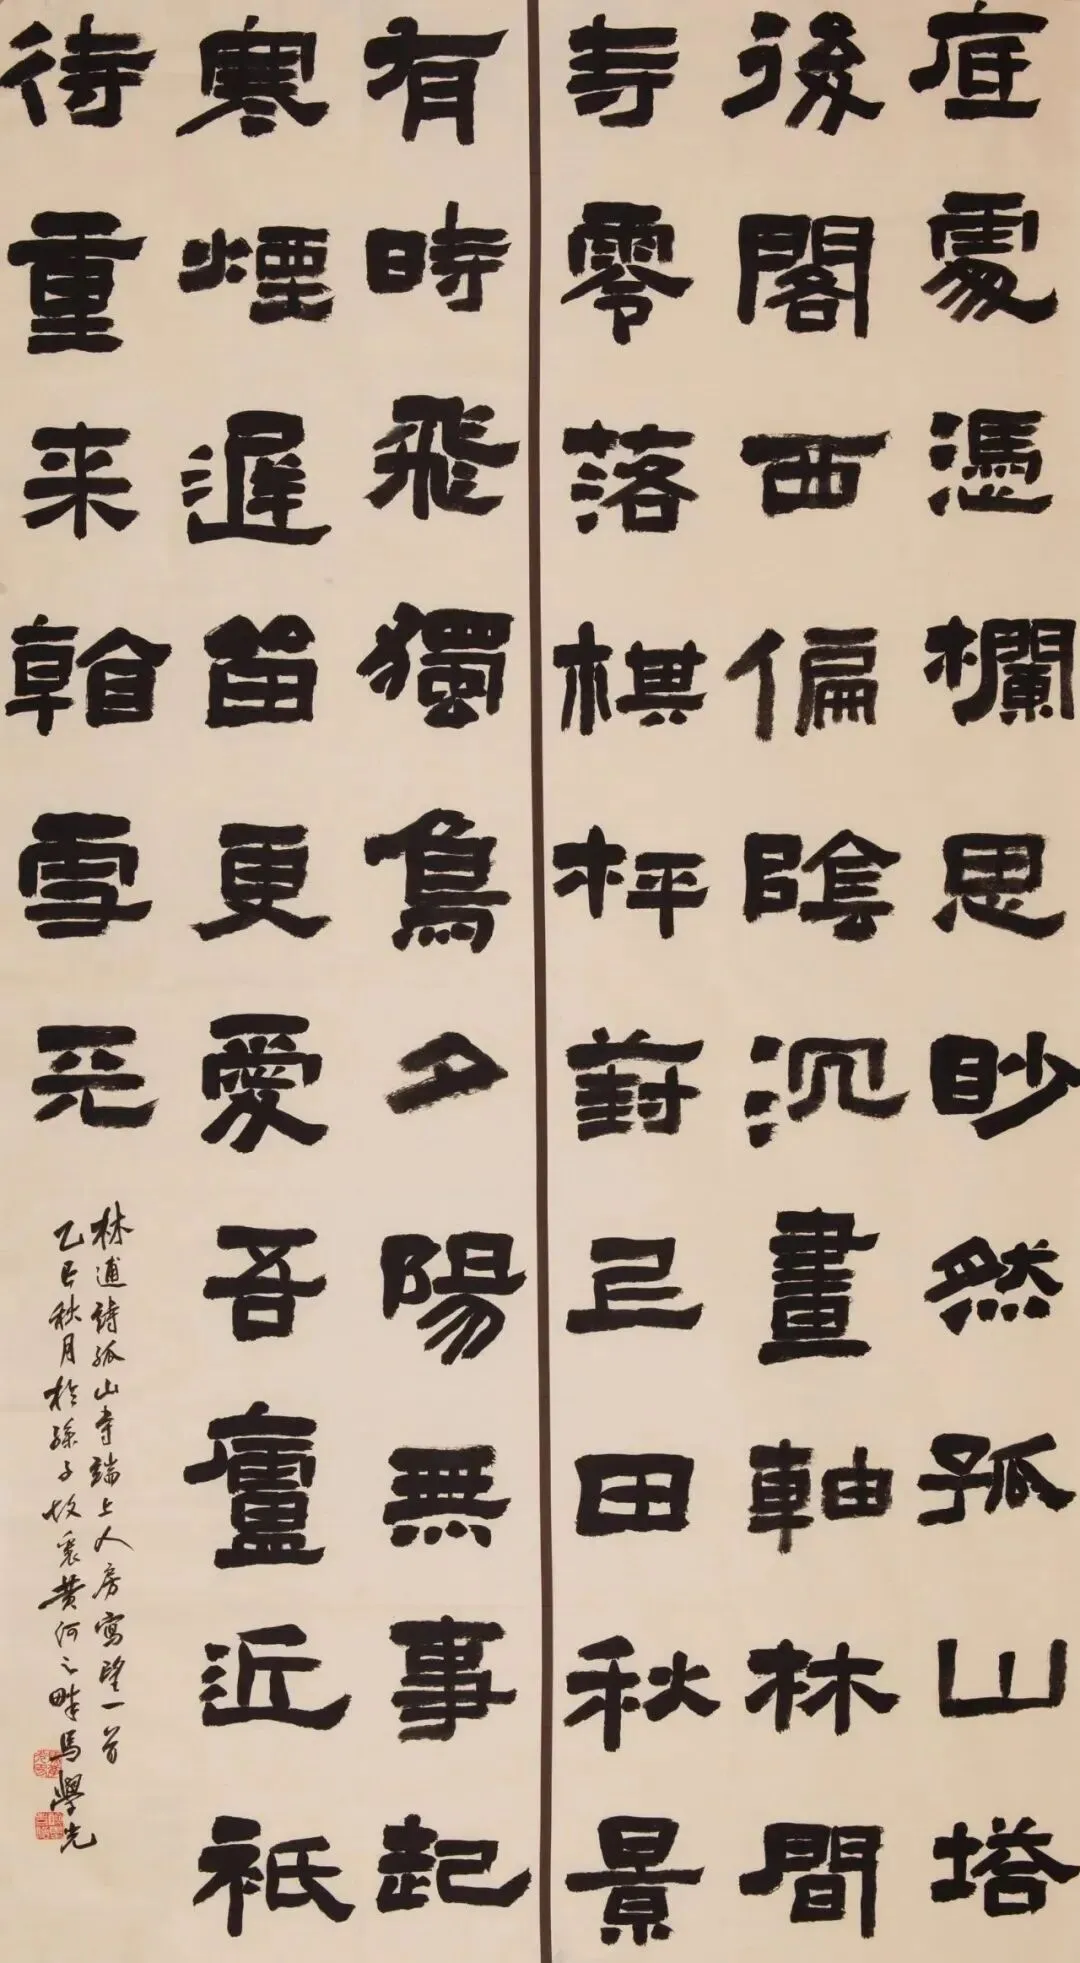 底處憑欄思眇然孤山塔
後閣西偏陰沉畫軸林間
寺零落棋枰葑上田秋景
有時飛獨鳥夕陽無事起
寒煙遲留更愛吾廬近祇
待重来看雪天
林逋詩孤山寺端上人房寫望一首
乙巳秋月於孫子故里黄河之畔馬學先